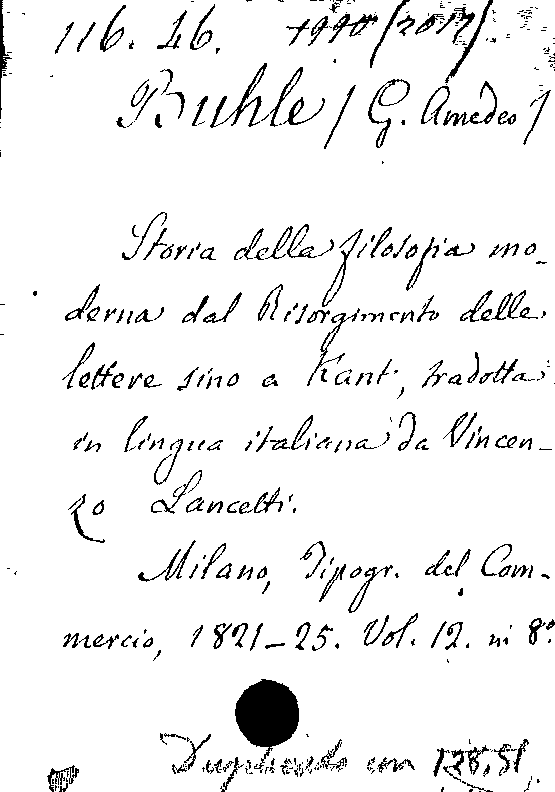 116. 46. 1990 (2017)
Buhle / G. Amedeo /
Storia della filosofia mo-
derna dal Risorgimento delle
lettere sino a Kant, tradotta
in lingua italiana da Vincen-
zo Lancetti.
Milano, Tipogr. del Com-
mercio, 1821-25. Vol. 12. in 8°.
Duplicado con